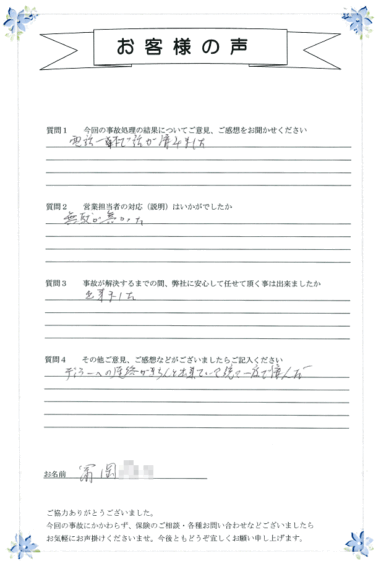 お客様の声
質問1 今回の事故処理の結果についてご意見、ご感想をお聞かせください
電話一本で話が済みました
質問2 営業担当者の対応（説明）はいかがでしたか
無駄が無かった
質問3 事故が解決するまでの間、弊社に安心して任せて頂く事は出来ましたか
出来ました
質問4 その他ご意見、ご感想などがございましたらご記入ください
ディーラーへの連絡がきちんと出来ていて
お名前
ご協力ありがとうございました。
今回の事故にかかわらず、保険のご相談・各種お問い合わせなどございましたら
お気軽にお声掛けくださいませ。今後ともどうぞ宜しくお願い申し上げます。